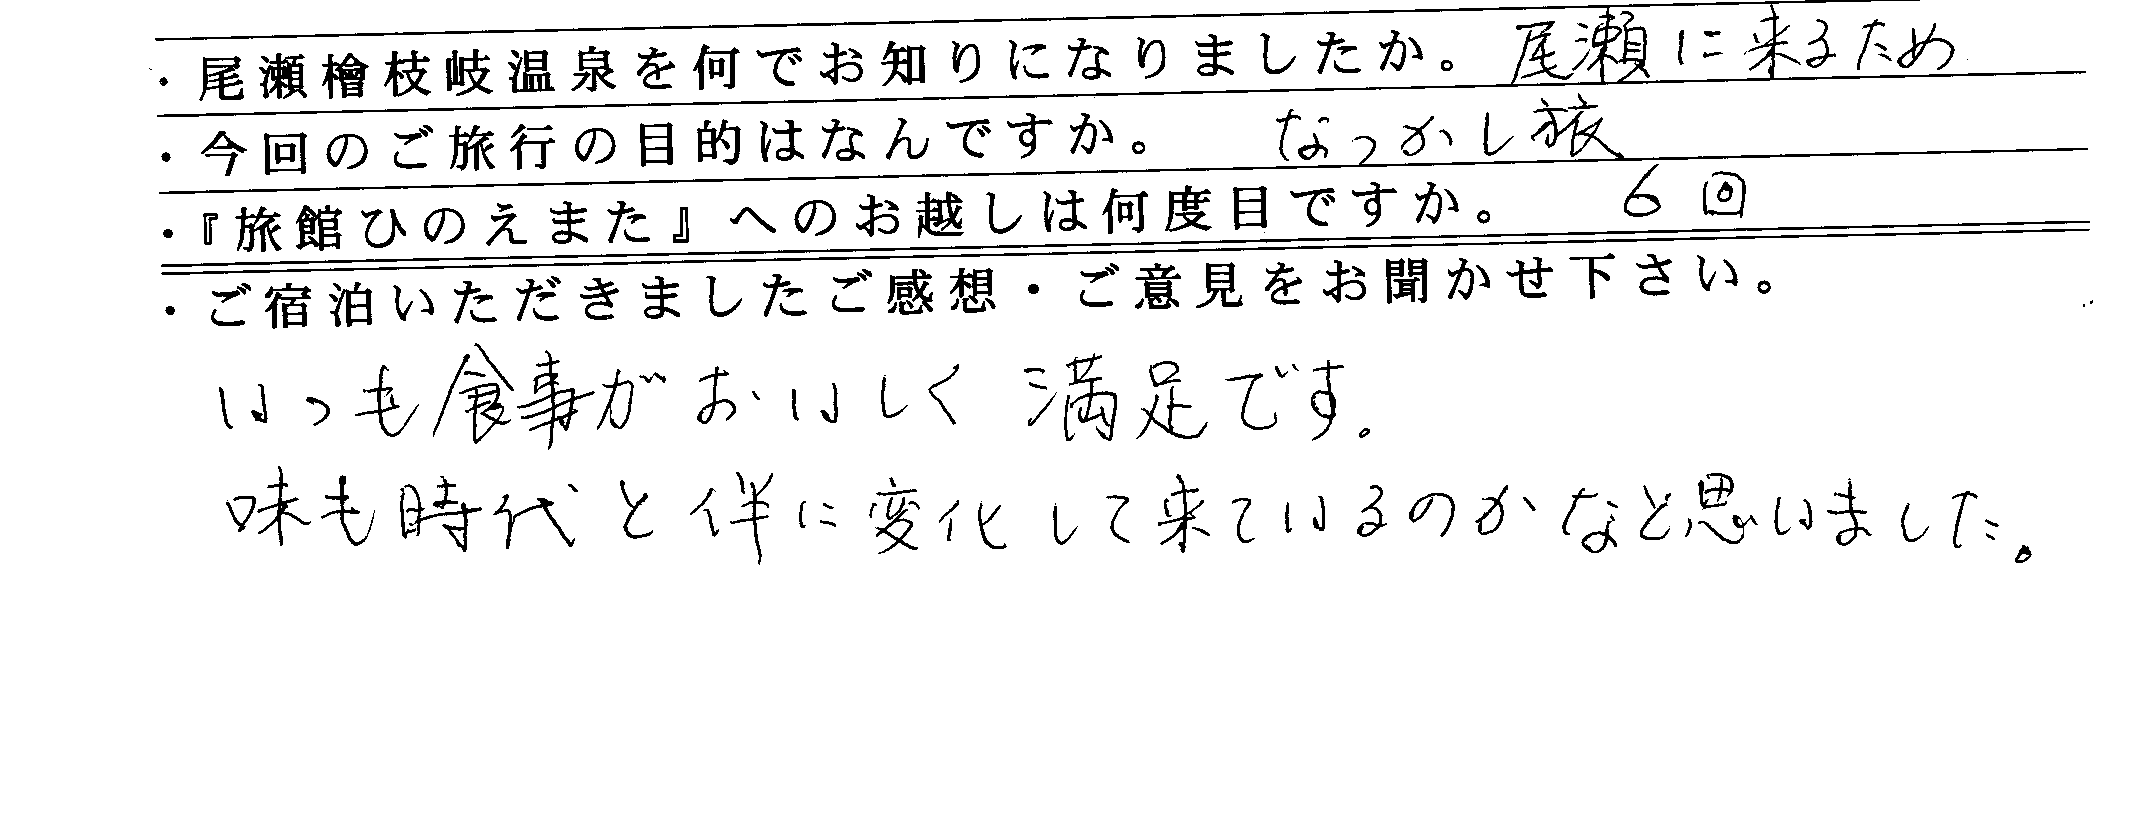 ・尾瀬檜枝岐温泉を何でお知りになりましたか。 尾瀬に来るため
・今回のご旅行の目的はなんですか。 なつかし旅
・『旅館ひのえまた』へのお越しは何度目ですか。 6回
・ご宿泊いただきましたご感想・ご意見をお聞かせ下さい。
いつも食事がおいしく満足です。
味も時代と伴に変化して来ているのかなと思いました。